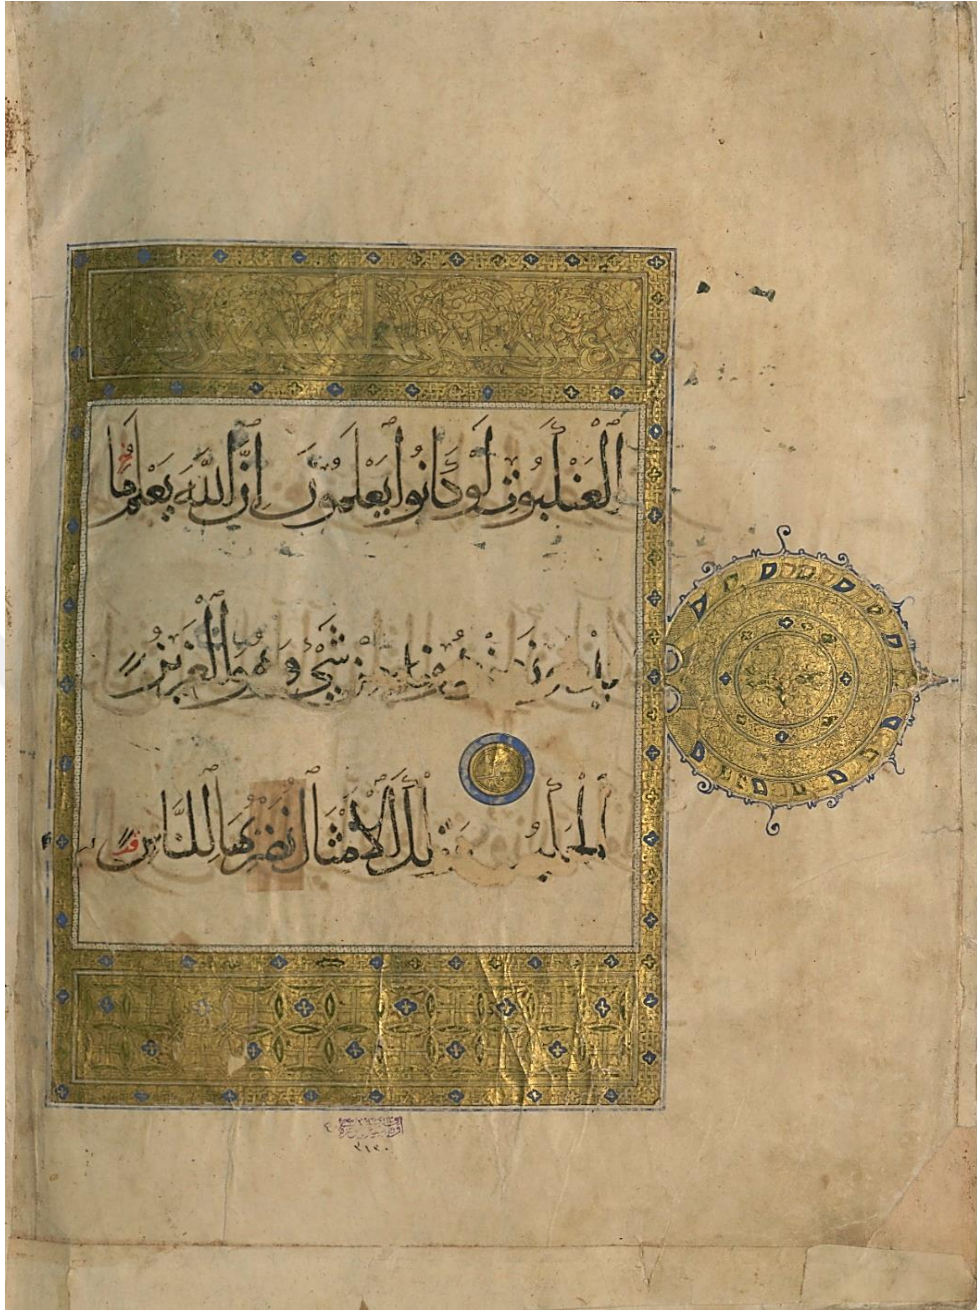 الْعَنْكَبُوتِ لَوْ كَانُوا يَعْلَمُونَ إِنَّ اللَّهَ يَعْلَمُ مَا
مِنْ دُونِهِ مِنْ شَيْءٍ وَهُوَ الْعَزِيزُ
الْحَكِيمُ وَتِلْكَ الْأَمْثَالُ نَضْرِبُهَا لِلنَّاسِ